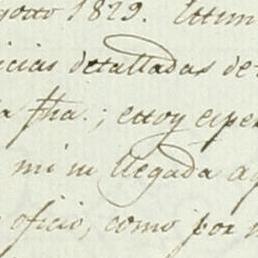 gosto 1829.
icias detalladas de
a fha.; estoy espe
mi su llegada a
oficio, como por